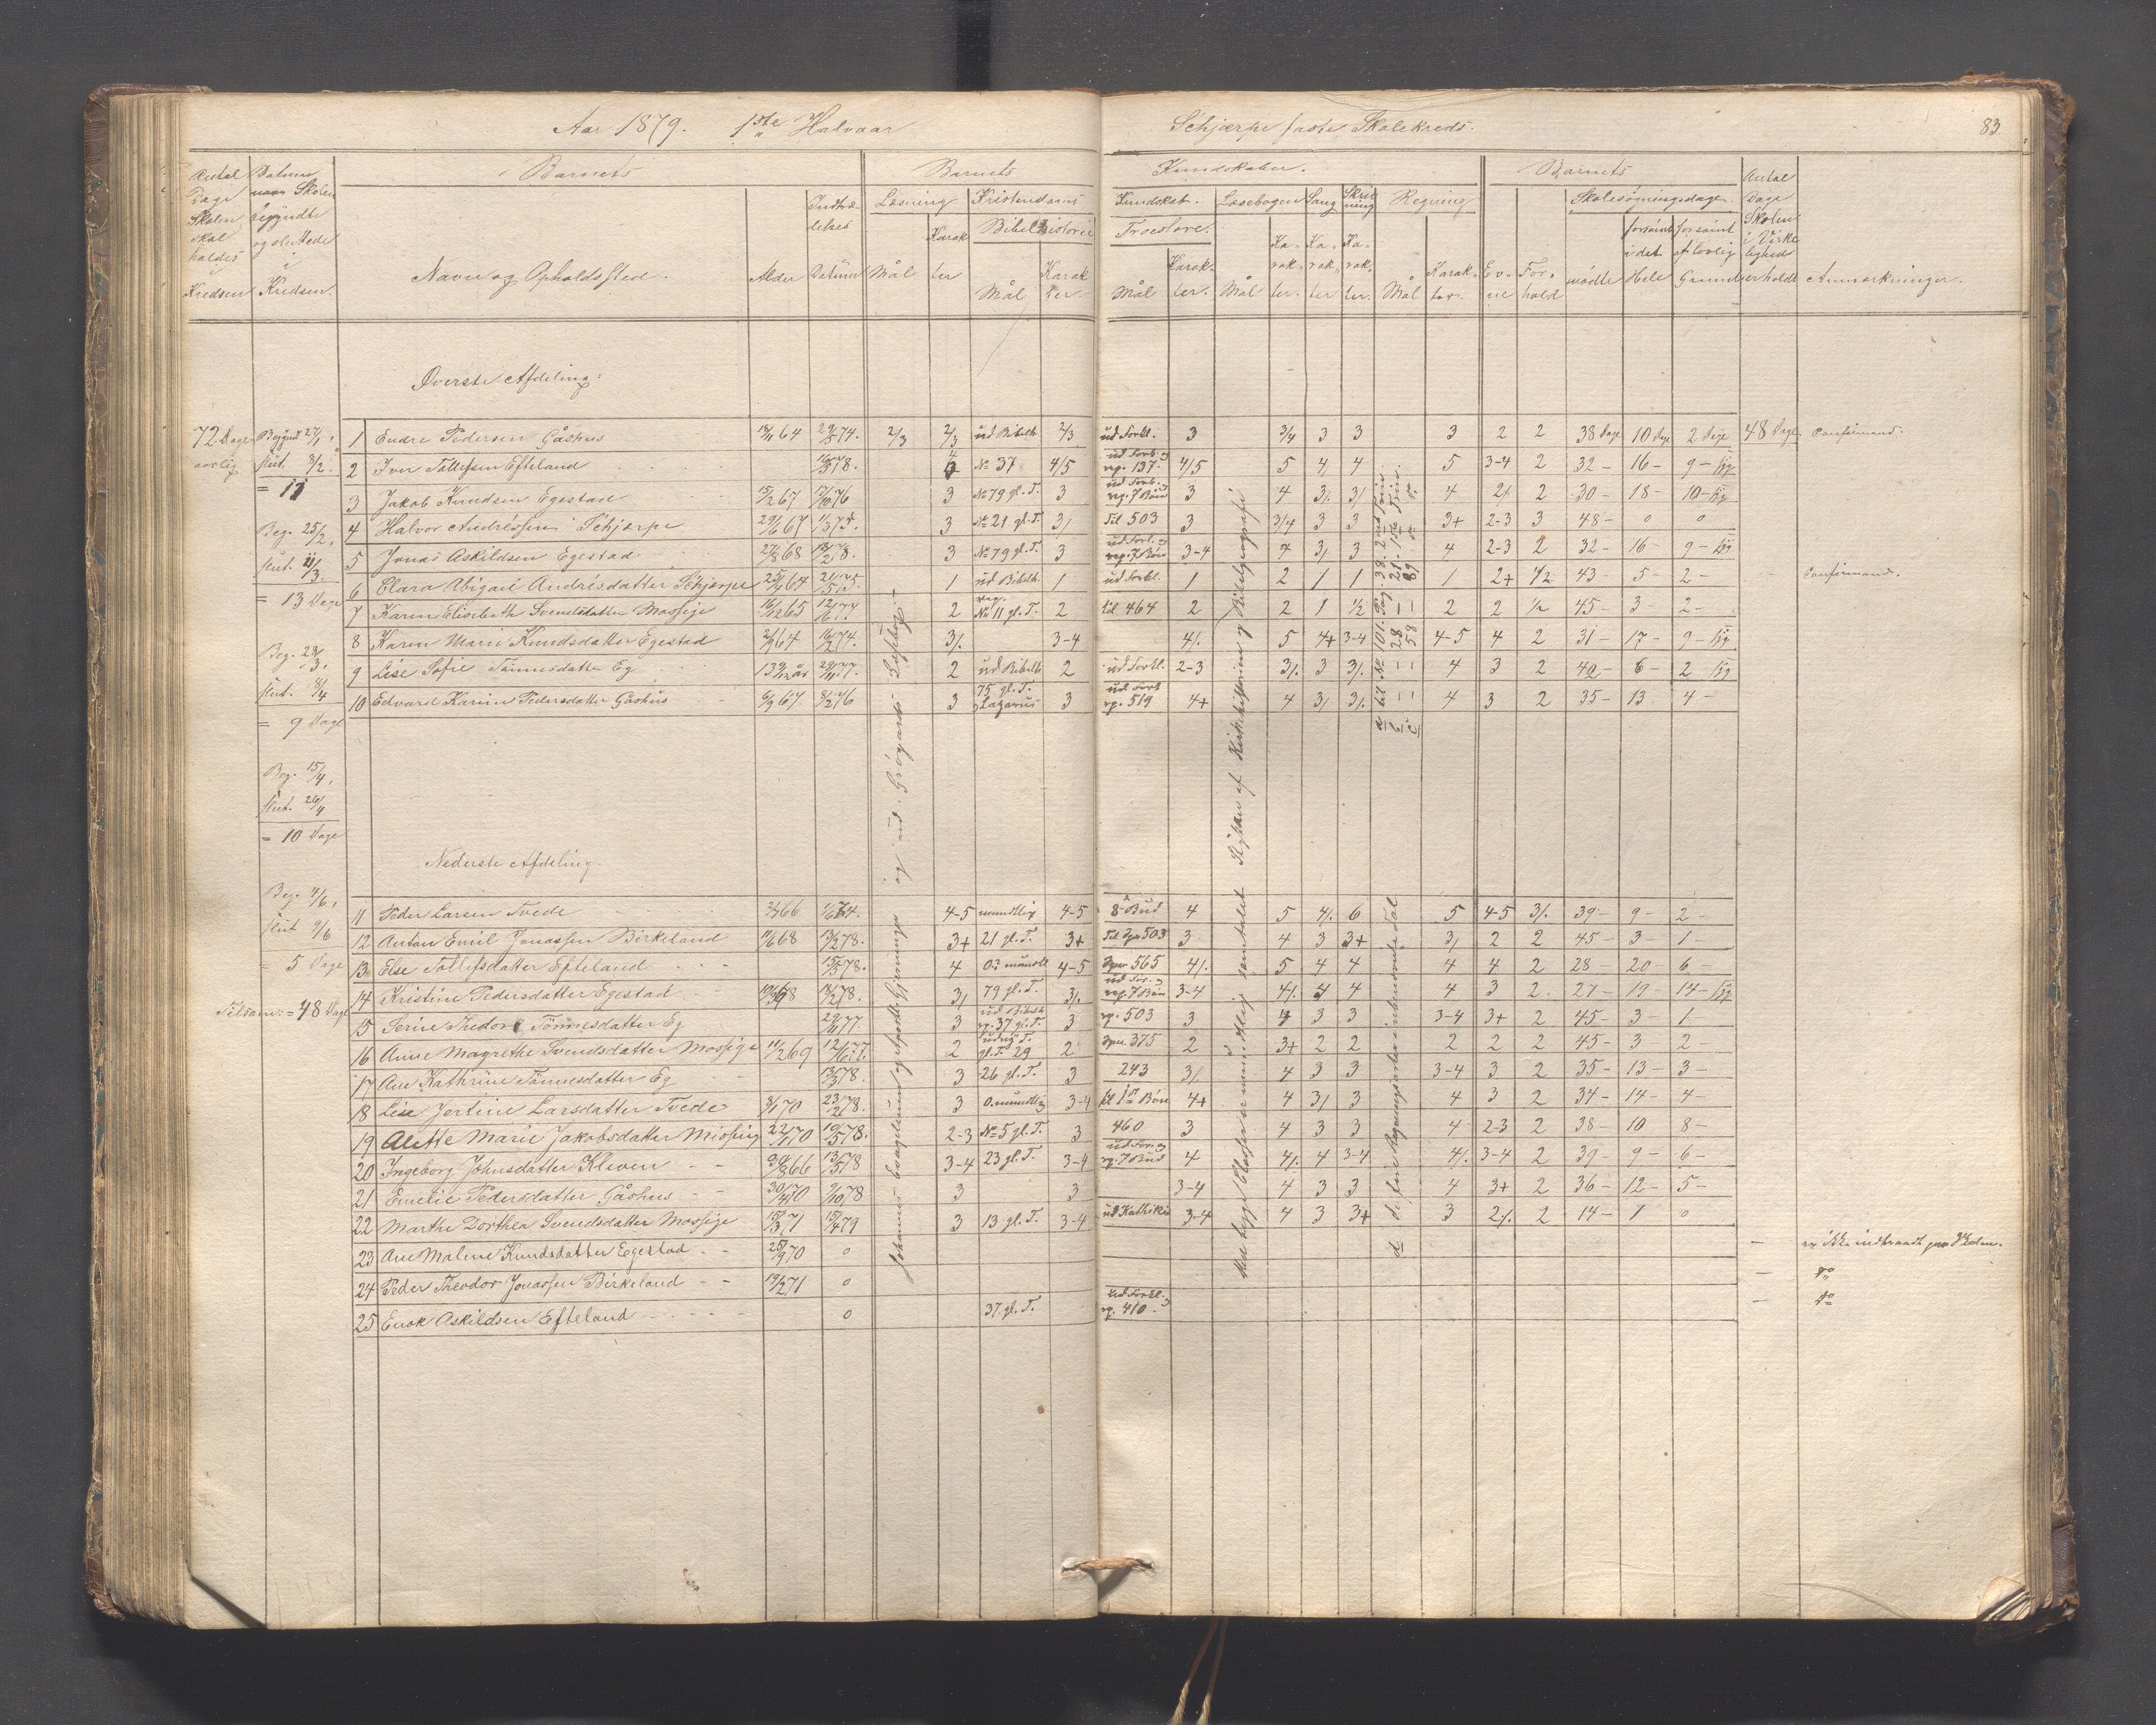 Aar 1879. 1ste Halvaar
Schjærpe faste Skolekreds.
83
Antal Dage Skolen skal holdes i Kredsen
Datum naar Skolen begyndte og sluttede i Kredsen.
Barnets
Navn og Opholdssted.
Alder
Indtrædelses Datum
Barnets
Kundskaber.
Læsning
Mål
Karakter
Kristendoms Kundskab.
Bibelhistorie
Mål
Karakter.
Troeslære.
Mål
Karakter.
Læsebogen
Mål
Karakter.
Sang
Karakter
Skrivning
Karakter.
Regning
Mål
Karakter.
Barnets
Evne
Forhold
Skolesøgningsdage.
mødte
forsømt i det Hele
forsømt af lovlig Grund
Antal Dage Skolen i Virkelighed er holdt
Anmærkninger.
Øverste Afdeling:
72 Dage aarlig
Begyndt 27/1,
slut. 8/2.
= 11
Beg. 25/2,
slut. 11/3.
= 13 Dage
Beg. 28/3,
slut. 8/4
= 9 Dage
Beg. 15/4,
slut. 26/4
= 10 Dage
Beg. 4/6,
slut 9/6
= 5 Dage
Tilsam: = 48 Dage
1 Endre Pedersen Gåshus 64 74. 2/3 2/3 ud Bibelh. 2/3 ud Forkl. 3 3/4 3 3 3 2 2 38 Dage 10 Dage 2 Dage 48 Dage Confirmand.
2 Iver Tollefsen Efteland 78. No 37 4/5 ud Fork. og rep. 137. 4/5 5 4 4 5 3-4 2 32 - 16 - 9 -
3 Jakob Knudsen Egestad 15/2 67 17/10 76 3 No 79 gl. T. 3 ud Forb. rep. 7 Bøn 3 4 3/. 3/. 4 2/. 2 30 - 18 - 10 -
4 Halvor Andréssen Schjærpe 29/6 67 11/3 75. 3 No 21 gl. T. 3/. Til 503 3 3/4 3 3 3+ 2-3 3 48 - 0 0
5 Jonas Askildsen Egestad 27/8 68 78. 3 No 79 gl. T. 3 rep. 7 Bøn 3-4 4 3/. 3 4 2-3 2 32 - 16 - 9 -
6 Clara Abigael Andrésdatter Schjærpe 64 75. 1 ud Bibelh. 1 ud Forkl. 1 2 1 1 1 2+ 1/2 43 - 5 - 2 - Confirmand.
7 Karen Elisebeth Svendsdatter Mossige 16/12 65 12/6 77 2 No 11 gl. T. 2 til 464 2 2 1 1/2 2 2 1/2 45 - 3 - 2 -
8 Karen Marie Knudsdatter Egestad 64 16/2 74. 3/. 3-4 4/. 5 4+ 3-4 4-5 4 2 31 - 17 - 9 -
9 Lise Sofie Tønnesdatter Eg 77. 2 ud Bibelh 2 ud Forkl. 2-3 3/. 3 3/. 4 3 2 40 - 8 - 2
10 Edvard Karine Pedersdatter Gåshus 6/9 67 8/2 76 3 75 gl. T. Lazarus 3 ud Fork rep. 519 4+ 4 3/. 3/. 4 3 2 35 - 13 4 -
Nederste Afdeling.
11 Peder Larsen Tvede 66 74. 4-5 mundtlig 4-5 8de Bud 4 5 4/. 6 5 4-5 3/. 39 - 9 - 2 -
12 Anton Emil Jonassen Birkeland 11/6 68 13/2 78. 3+ 21 gl. T. 3+ Til Spm 503 3 4 3 3+ 3/. 2 2 45 - 3 - 1 -
13 Else Tollefsdatter Efteland 15/5 78. 4 4-5 Spm 565 4/. 5 4 4 4 4 2 28 - 20 - 6 -
14 Kristine Pedersdatter Egestad 68 78. 3/. 79 gl. T. 3/. ud For. og rep. 7 Bøn 3-4 4/. 4 4 4 3 2. 27 - 19 - 14 -
15 Serine Thedore Tønnesdatter Eg 77. 3 ud Bibelh rp. 37 gl. T. 3 rp. 503 3 4 3 3 3-4 3+ 2 45 - 3 - 1 -
16 Anne Magrethe Svendsdatter Mossige 11/2 69 12/6 77. 2 gl. T. 29 2 Spm. 375 2 3+ 2 2 2 2 2 45 - 3 - 2 -
17 Ane Kathrine Tønnesdatter Eg 13/3 78. 3 26 gl. T. 3 243 3/. 4 3 3 3-4 3 2 35 - 13 - 3 -
18 Lise Jertine Larsdatter Tvede 8/1 70 23/2 78. 3 0. mundtlig 3-4 til 1ste Bøn 4+ 4 3/. 3 4 3 2 34 - 14 - 4 -
19 Alette Marie Jakobsdatter Missing 22/1 70 10/5 78. 2-3 No 5 gl. T. 3 460 3 4 3 3 4 2-3 2 38 - 10 8 -
20 Ingeborg Johnsdatter Kleven 66 13/5 78 3-4 23 gl. T. 3-4 ud For. og rp. 7 Bud 4 4/. 4 3-4 4/. 3-4 2 39 - 9 - 6 -
21 Emelie Pedersdatter Gåshus 70 9/10 78 3 3 3-4 4 3 3 4 3+ 2 36 - 12 - 5 -
22 Marthe Dorthea Svendsdatter Mossige 15/3 71 15/4 79 3 13 gl. T. 3-4 ud Kathiki 3-4 4 3 3+ 3 2/. 2 14 - 1 0
23 Ane Malene Knudsdatter Egestad 25/9 70 0 — er ikke indtraadt paa Skolen.
24 Peder Theodor Jonassen Birkeland 19/2 71 0 — do
25 Enok Askildsen Efteland 0 37. gl. T. ud Forkl. og rp. 410. — do
Johannes Evangelium og Apostl. Gjerninger og ud i Grøgaards Læsebog.
samtlet Stykker af Kirkehistorien og Bibelgeografi
a til No 101. Pag. 38. 2ud Trin.
b — 28 — 21. 1ste Trin.
c — 58 — 89 do do
d de fire Regningsarter i ubenævnte Tal